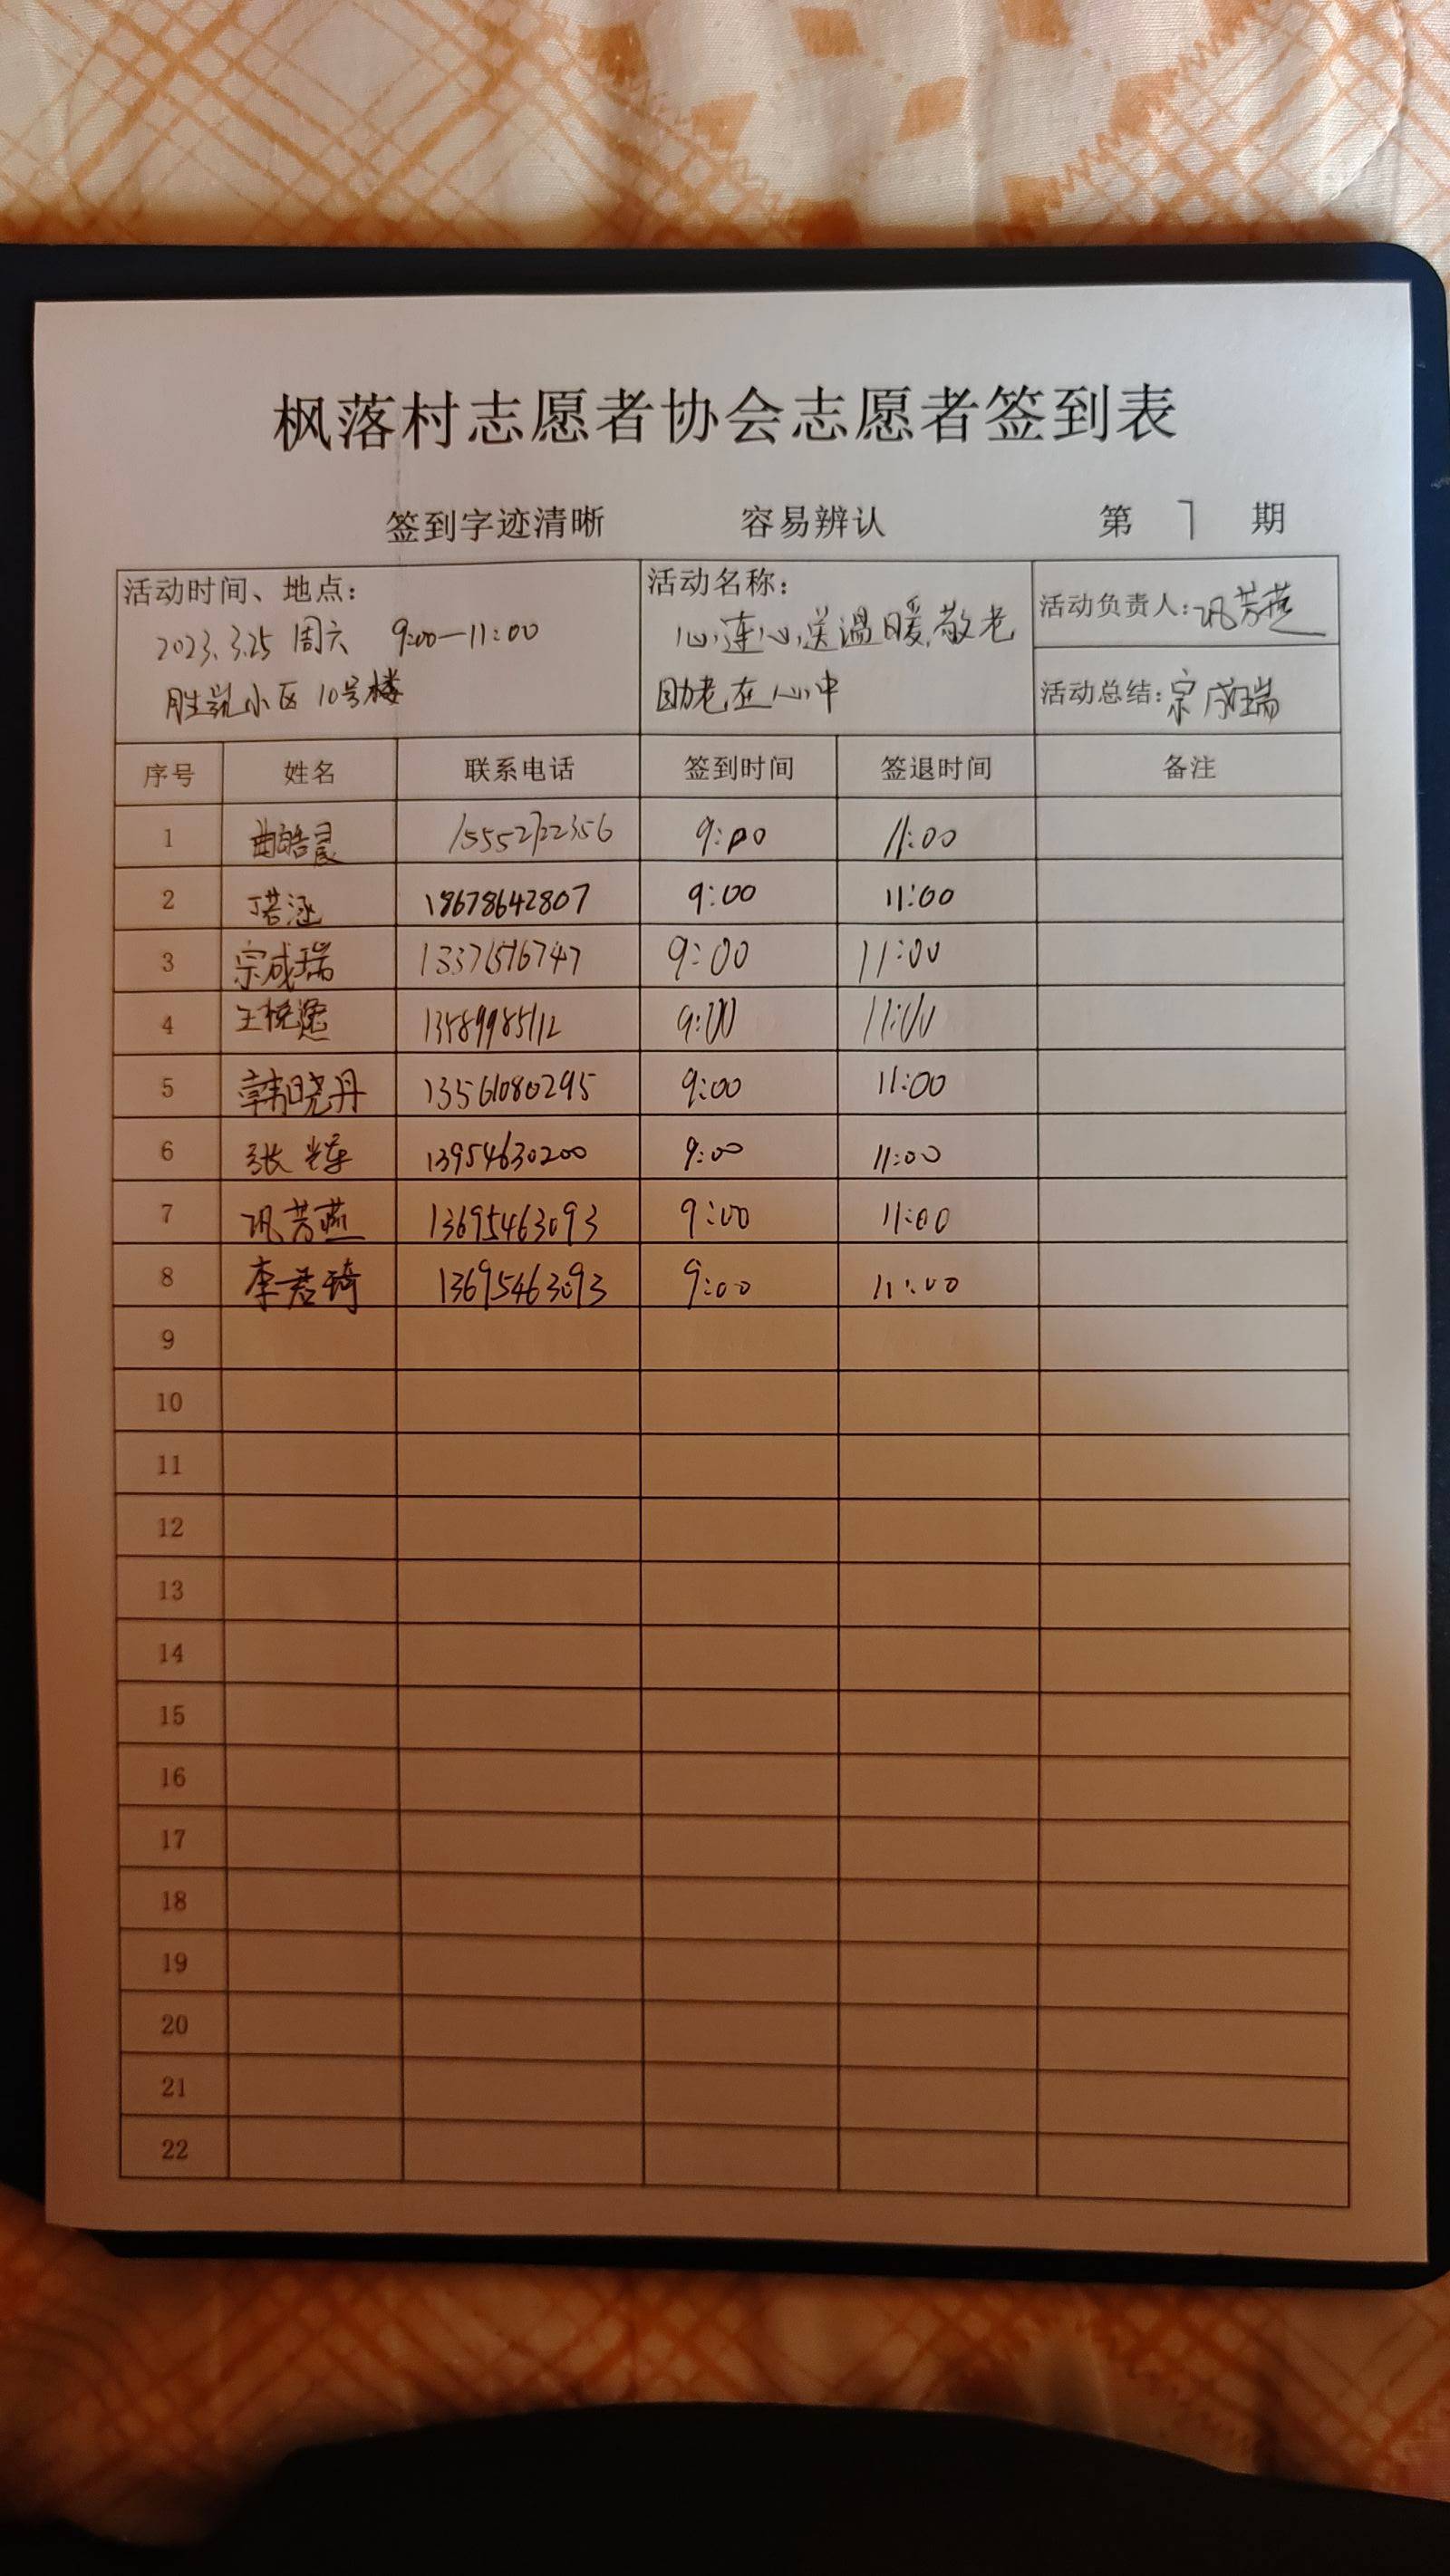 枫落村志愿者协会志愿者签到表
签到字迹清晰 容易辨认 第 7 期
活动时间、地点:
2023.3.25 周六 9:00—11:00
小区10号楼
活动名称:
心连心,送温暖,敬老
助老在心中
活动负责人:巩芳燕
活动总结:宗成瑞
序号 姓名 联系电话 签到时间 签退时间 备注
1 曲皓晨 15552722356 9:00 11:00
2 丁若涵 18678642807 9:00 11:00
3 宗成瑞 9:00 11:00
4 13589985112 9:00 11:00
5 韩晓丹 13561080295 9:00 11:00
6 张辉 13954630200 9:00 11:00
7 巩芳燕 13695463093 9:00 11:00
8 李君琦 13695463093 9:00 11:00
9
10
11
12
13
14
15
16
17
18
19
20
21
22